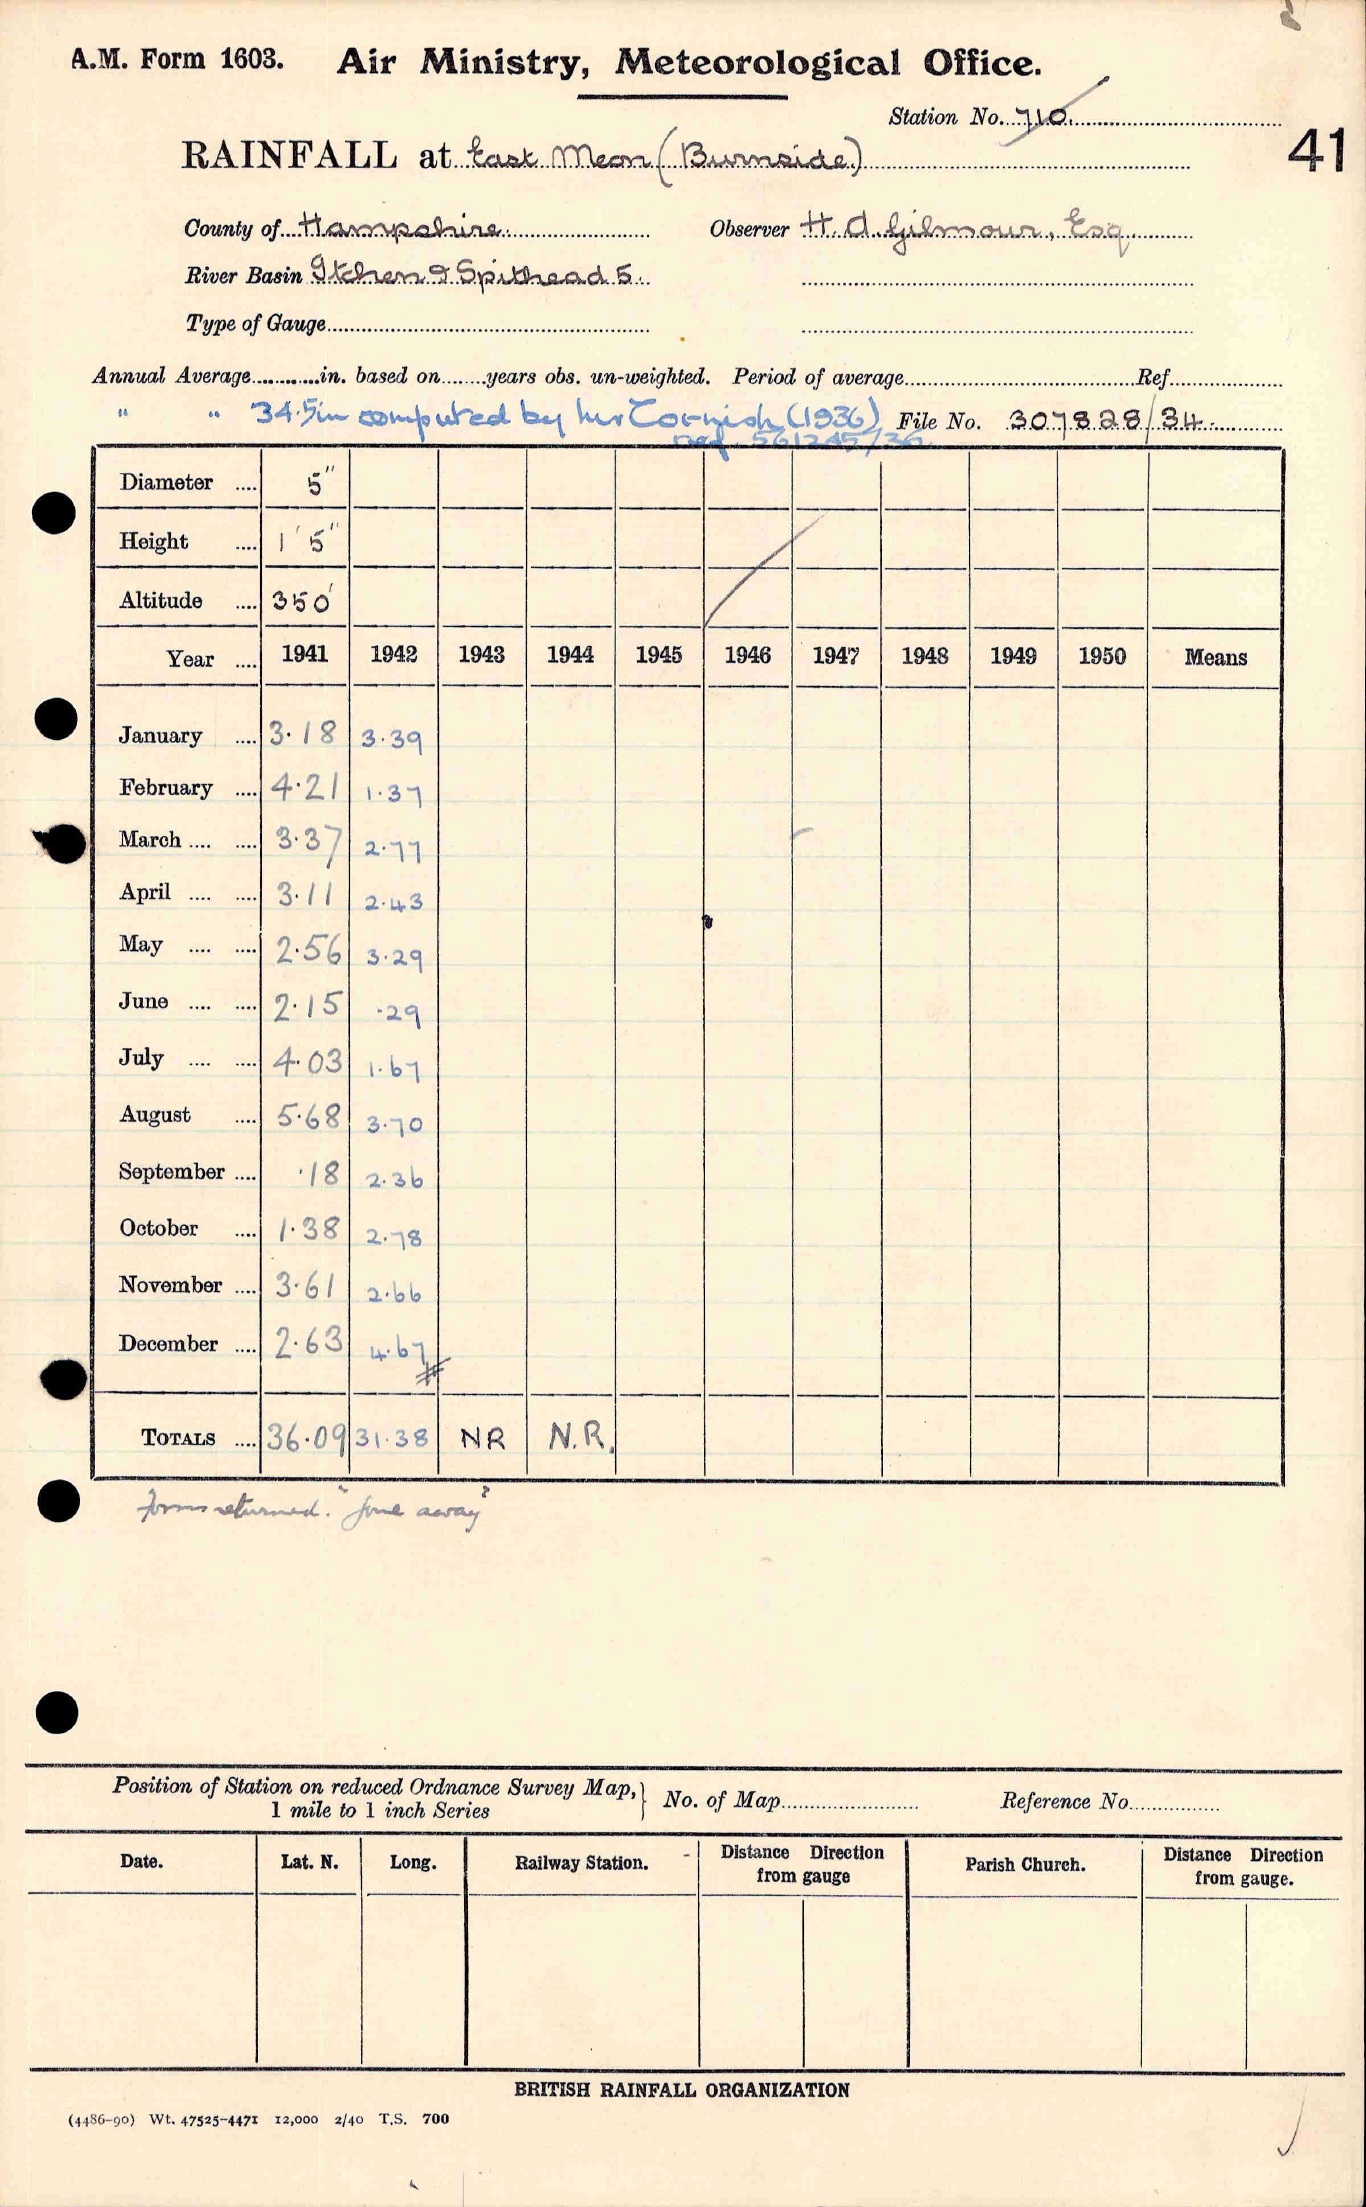 A.M. Form 1603. Air Ministry, Meteorological Office.
Station No. 710.
RAINFALL at East Meon (Burnside) 41
County of Hampshire. Observer H. A. Gilmour, Esq.
River Basin Itchen & Spithead 5.
Type of Gauge
Annual Average............in. based on........years obs. un-weighted. Period of average Ref
" " 34.5in computed by Mr Cornish (1936) File No. 307828/34
ref. 561245/36
Diameter .... 5"
Height .... 1' 5"
Altitude .... 350'
Year .... 1941 1942 1943 1944 1945 1946 1947 1948 1949 1950 Means
January .... 3.18 3.39
February .... 4.21 1.37
March .... .... 3.37 2.77
April .... .... 3.11 2.43
May .... .... 2.56 3.29
June .... .... 2.15 .29
July .... .... 4.03 1.67
August .... 5.68 3.70
September .... .18 2.36
October .... 1.38 2.78
November .... 3.61 2.66
December .... 2.63 4.67
TOTALS .... 36.09 31.38 NR N.R.
forms returned. "gone away"
Position of Station on reduced Ordnance Survey Map, } No. of Map Reference No.
1 mile to 1 inch Series
Date. Lat. N. Long. Railway Station. Distance Direction from gauge Parish Church. Distance Direction from gauge.
BRITISH RAINFALL ORGANIZATION
(4486-90) Wt. 47525-4471 12,000 2/40 T.S. 700